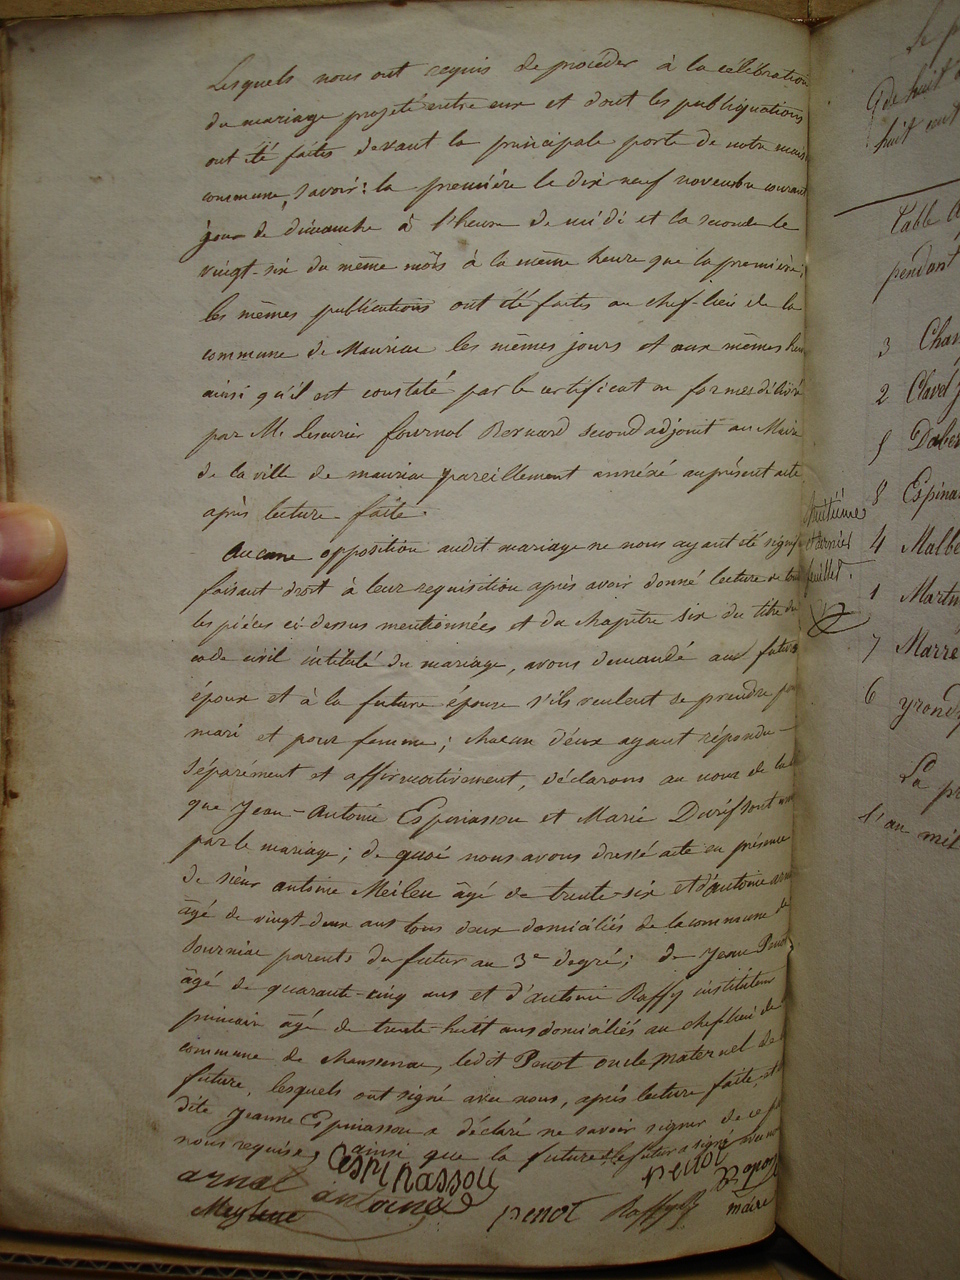 Lesquels nous ont requis de procéder à la célébration
du mariage projeté entre eux et dont les publiquations
ont été faites devant la principale porte de notre maison
commune, savoir: la première le dix neuf novembre courant
jour de dimanche à l'heure de midi et la seconde le
vingt-six du même mois à la même heure que la première;
les mêmes publications ont été faites au chef-lieu de la
commune de Mauriac les mêmes jours et aux mêmes heu
ainsi qu'il est constaté par le certificat en formes délivré
par Mr Lescurier fournol Bernard second adjoint au Maire
de la ville de mauriac pareillement annéxé au présent acte
après lecture faite.
Aucune opposition audit mariage ne nous ayant été signifi
faisant droit à leur requisition après avoir donné lecture de tou
les pièces ci-dessus mentionnées et du chapitre six du titre du
code civil intitulé du mariage, avons demandé au futur
époux et à la future épouse s'ils veulent se prendre pou
mari et pour femme; chacun d'eux ayant répondu
séparément et affirmativement, déclarons au nom de la l
que Jean-Antoine Espinassou et Marie Durif sont un
par le mariage; de quoi nous avons dressé acte en présence
de sieur antoine Meilen âgé de trente-six et d'antoine arn
âgé de vingt-deux ans tous deux domiciliés de la commune de
Sourniac parents du futur au 3e degré; de Jean Penot
âgé de quarante-cinq ans et d'antoine Raffy instituteur
primair âgé de trente-huit ans domiciliés au chef lieu de
commune de chaussenac, ledit Penot oncle maternel de
future, lesquels ont signé avec nous, après lecture faite, et
dite Jeanne Espinassou a déclaré ne savoir signer de ce
nous requise, ainsi que la future le futur a signé avec nous
arnal espinassou penot
antoine
Meylene penot Raffy maire
huitième
et dernier
feuillet.
Le p
de huit
huit cent
Table
pendant
3 Chan
2 Clavel
5 Daber
8 Espina
4 Malbe
1 Martin
7 Marre
6 yrond
La pr
l'an mil